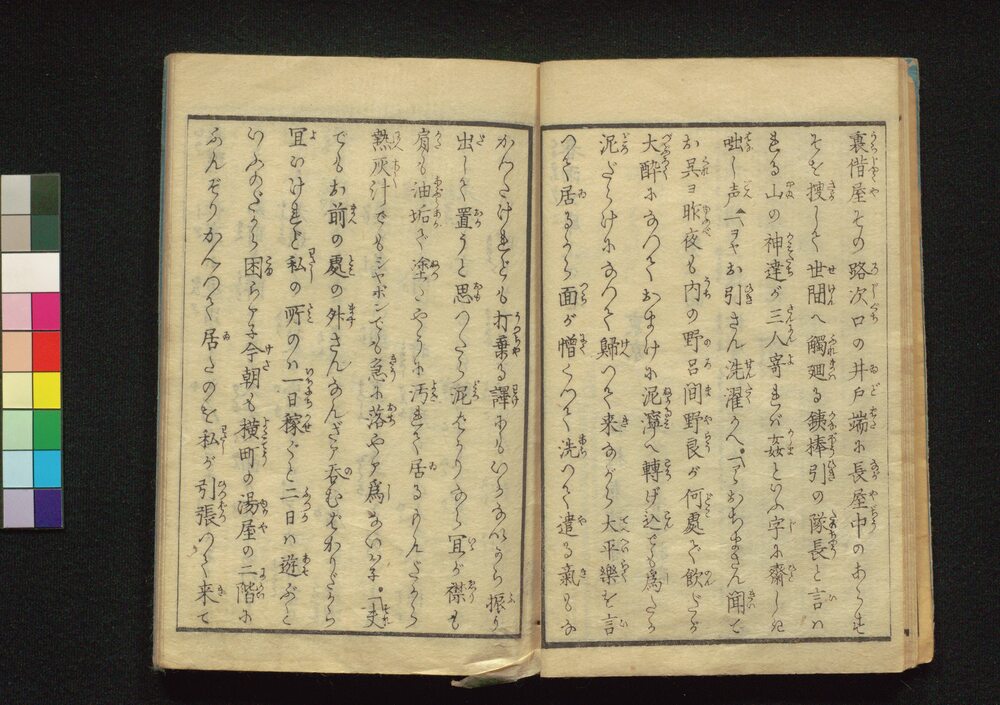 裏借屋その路次口の井戸端に長屋中のあらを
そを捜して世間へ觸廻る鐵棒引の隊長と言は
れる山の神達が三人寄れば姦といふ字に齋しき
咄し声「ヲヤお引さん洗濯かへ。「アラおちよさん聞て
お呉ヨ昨夜も内の野呂間野良が何處で飲だか
大酔になつておまけに泥濘へ轉げ込でも為たか
泥だらけになつて歸つて来ながら大平樂を言
つて居るから面が憎くつて洗つて遣る氣もな
かつたけれども打棄る譯にもいかないから振り
出して置うと思つたら泥ばかりなら宜が襟も
肩も油垢で塗たやうに汚れて居るもんだから
熱灰汁でもシヤボンでも急に落やア為ないはネ。「夫
でもお前の處の外さんなんざア呑むばかりだから
宜いけれど私の所のは一日稼ぐと二日は遊ぶと
いふのだから困らアネ今朝も横町の湯屋の二階に
ふんぞりかへつて居たのを私が引張つて来て